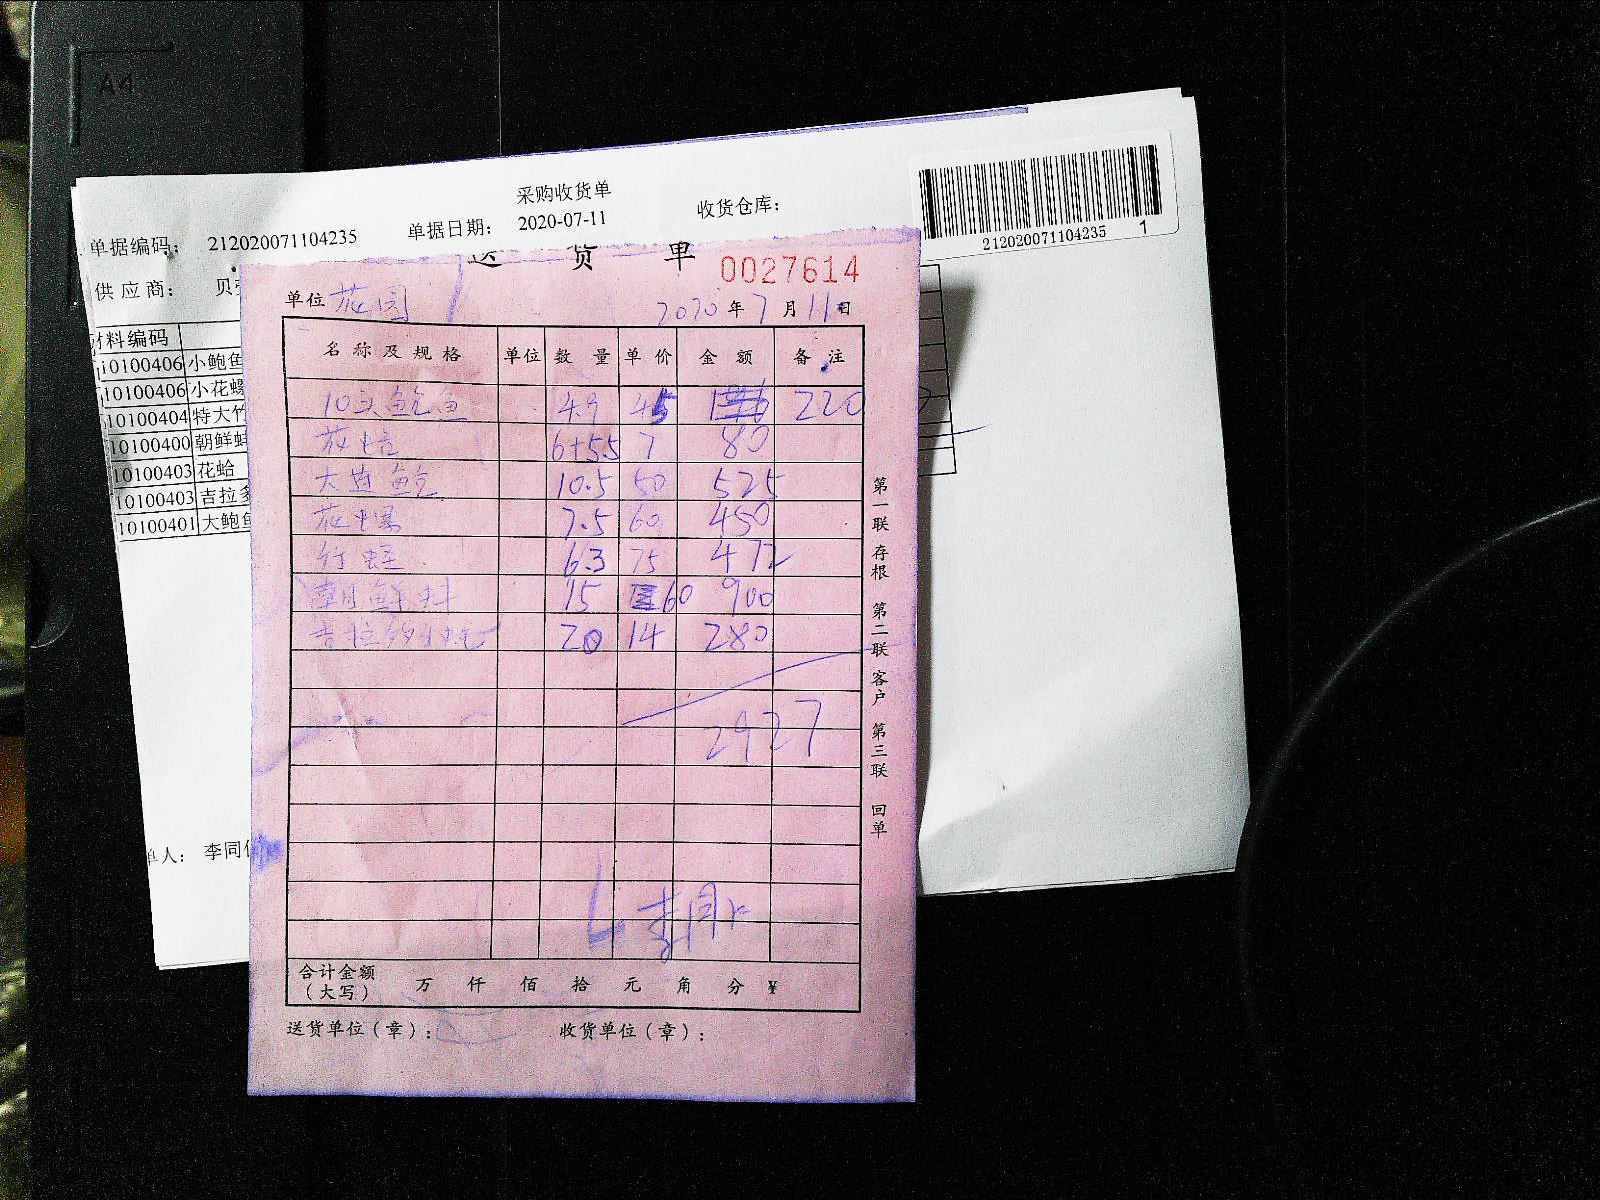 A4
采购收货单
单据编码: 212020071104235 单据日期: 2020-07-11 收货仓库:
212020071104235 1
供应商: 贝
送货单
0027614
单位 花园 2020年7月11日
材料编码
10100406 小鲍鱼
10100406 小花螺
10100404 特大竹
10100400 朝鲜蚌
10100403 花蛤
10100403 吉拉多
10100401 大鲍鱼
名称及规格 单位 数量 单价 金额 备注
10头鲍鱼 4.9 45 220
花蛤 6+5.5 7 80
大连鲍 10.5 50 525
花螺 7.5 60 450
竹蛏 6.3 75 472
朝鲜蚌 15 60 900
吉拉多 20 14 280
2927
李同
单人: 李同
合计金额(大写) 万 仟 佰 拾 元 角 分 ¥
送货单位(章): 收货单位(章):
第一联 存根 第二联 客户 第三联 回单